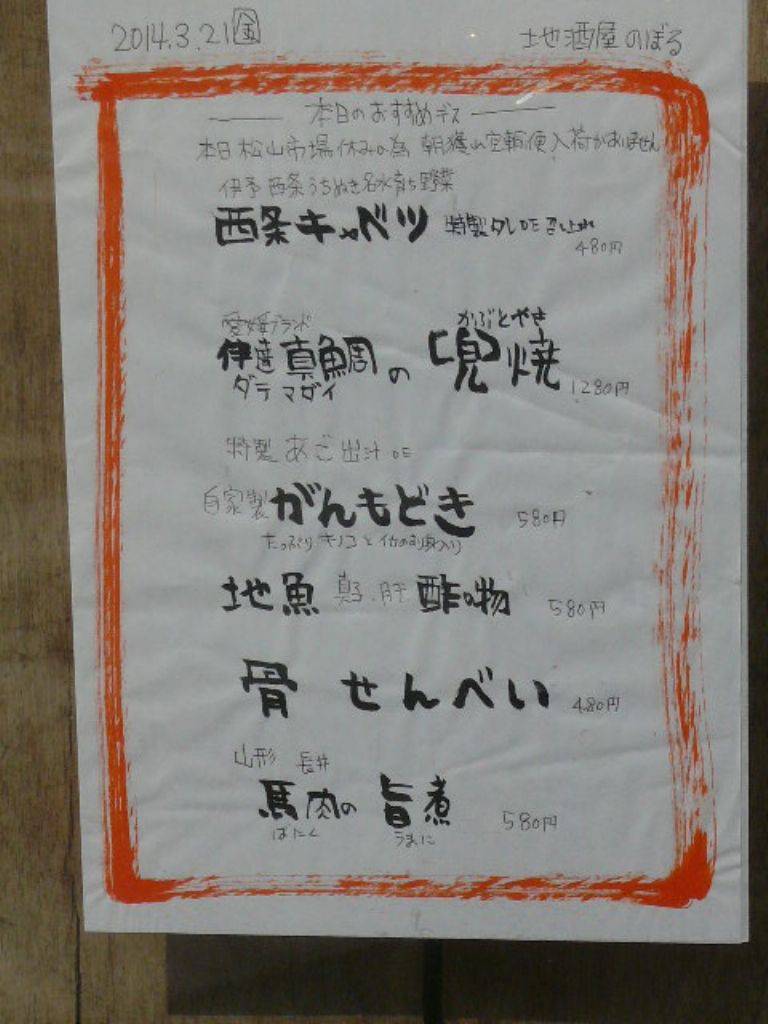 2014.3.21金 地酒屋のぼる
本日のおすすめデス
本日松山市場休みの為 朝獲れ空輸便入荷がありません
伊予西条うちぬき名水育ち野菜
西条キャベツ 特製タレDE召し上れ
480円
愛媛ブランド かぶとやき
伊達真鯛の「兜」焼 1280円
ダテマダイ
特製あご出汁DE
自家製がんもどき 580円
たっぷりキノコと
地魚 真子.肝 酢の物 580円
骨せんべい 480円
山形 長井
馬肉の旨煮 580円
ばにく うまに